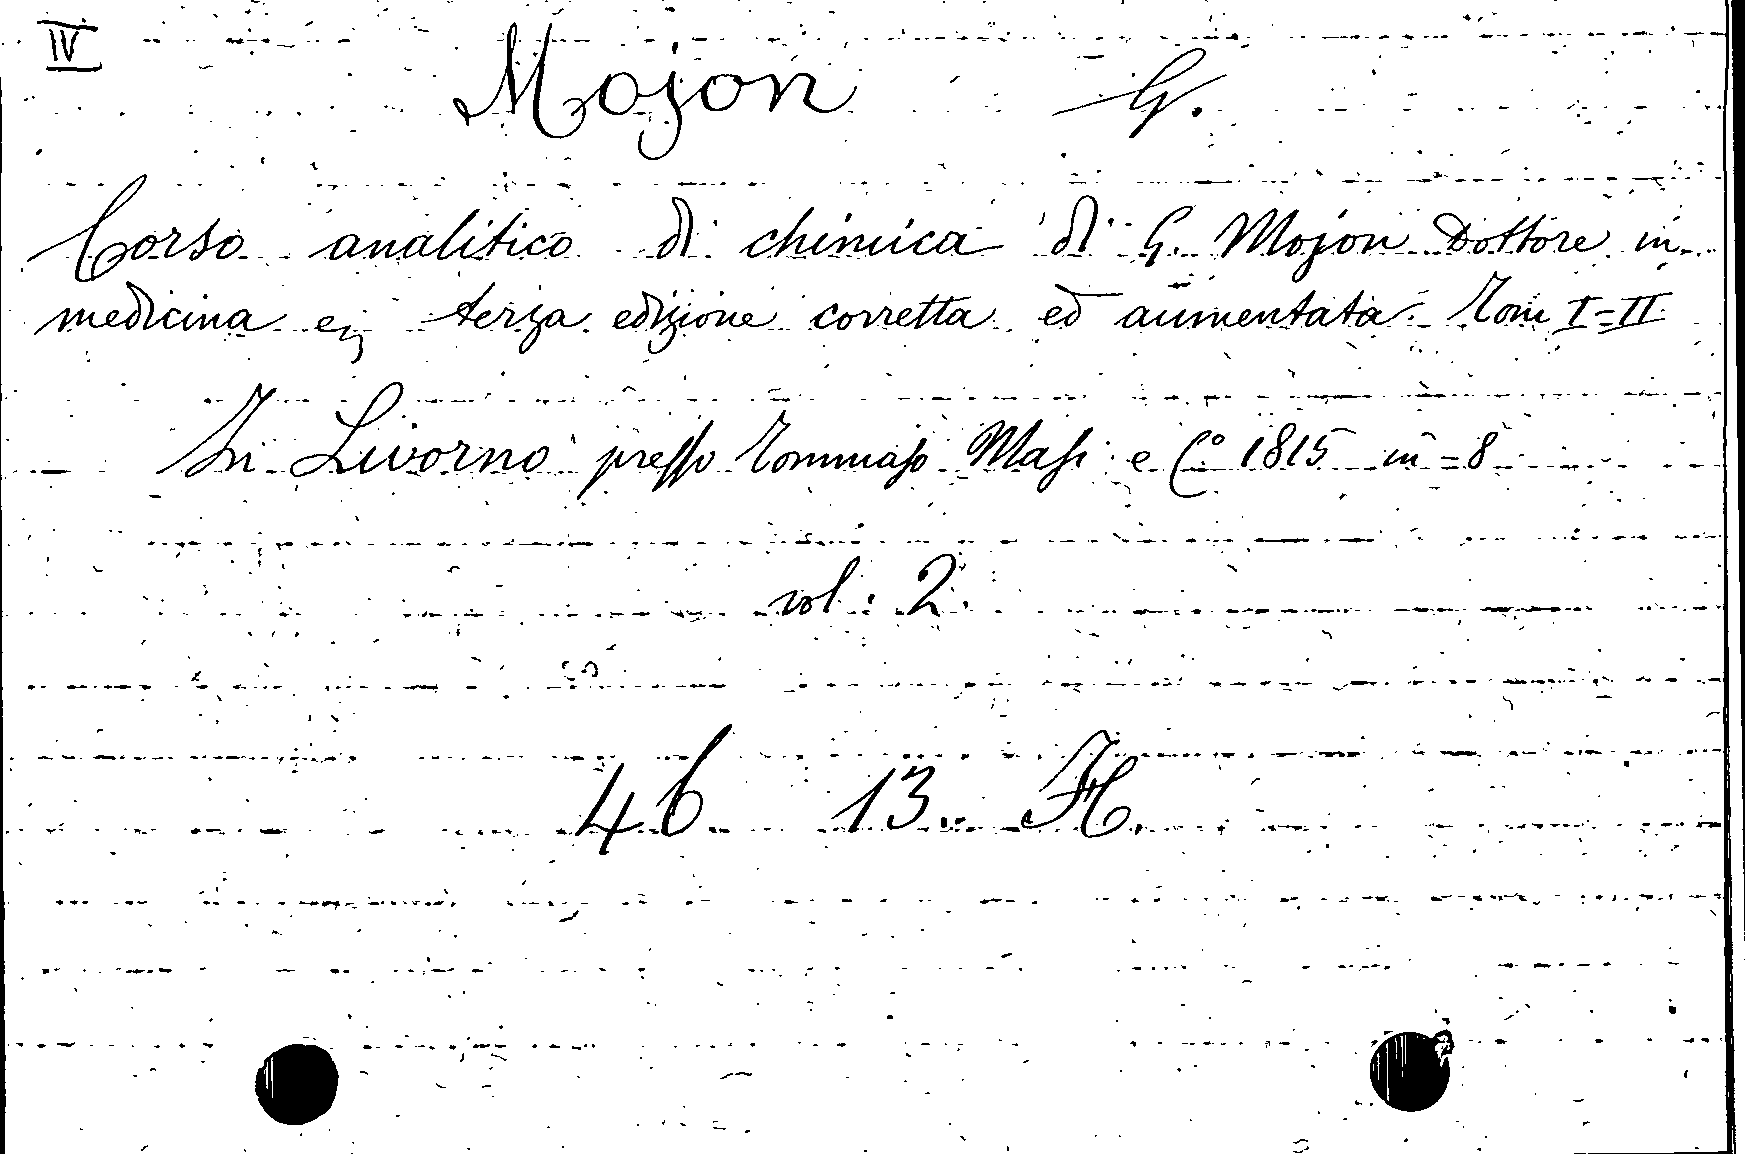 IV
Mojon G.
Corso analitico di chimica di G. Mojon Dottore in
medicina ec; terza edizione corretta ed aumentata Tom I=II
In Livorno presso Tommaso Masi e C° 1815 in=8
vol: 2.
46 13. H.